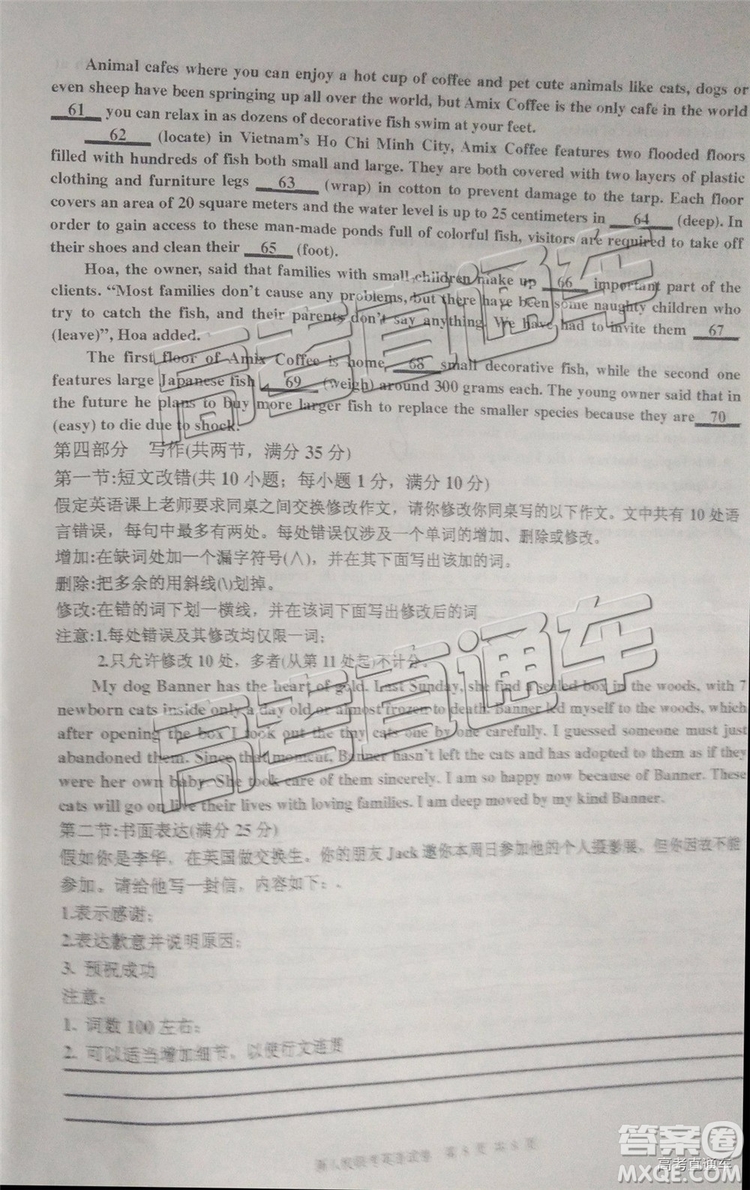 Animal cafes where you can enjoy a hot cup of coffee and pet cute animals like cats, dogs or
even sheep have been springing up all over the world, but Amix Coffee is the only cafe in the world
61 you can relax in as dozens of decorative fish swim at your feet.
62 (locate) in Vietnam's Ho Chi Minh City, Amix Coffee features two flooded floors
filled with hundreds of fish both small and large. They are both covered with two layers of plastic
clothing and furniture legs 63 (wrap) in cotton to prevent damage to the tarp. Each floor
covers an area of 20 square meters and the water level is up to 25 centimeters in 64 (deep). In
order to gain access to these man-made ponds full of colorful fish, visitors are required to take off
their shoes and clean their 65 (foot).
Hoa, the owner, said that families with small children make up 66 important part of the
clients. “Most families don't cause any problems, but there have been some naughty children who
try to catch the fish, and their parents don't say anything. We have had to invite them 67
(leave)”, Hoa added.
The first floor of Amix Coffee is home 68 small decorative fish, while the second one
features large Japanese fish 69 (weigh) around 300 grams each. The young owner said that in
the future he plans to buy more larger fish to replace the smaller species because they are 70
(easy) to die due to shock.
第四部分 写作(共两节，满分 35 分)
第一节:短文改错(共 10 小题；每小题 1 分，满分 10 分)
假定英语课上老师要求同桌之间交换修改作文，请你修改你同桌写的以下作文。文中共有 10 处语
言错误，每句中最多有两处。每处错误仅涉及一个单词的增加、删除或修改。
增加:在缺词处加一个漏字符号(∧)，并在其下面写出该加的词。
删除:把多余的用斜线(\)划掉。
修改:在错的词下划一横线，并在该词下面写出修改后的词
注意:1.每处错误及其修改均仅限一词；
2.只允许修改 10 处，多者(从第 11 处起)不计分。
My dog Banner has the heart of gold. Last Sunday, she find a sealed box in the woods, with 7
newborn cats inside only a day old or almost frozen to death. Banner led myself to the woods, which
after opening the box I took out the tiny cats one by one carefully. I guessed someone must just
abandoned them. Since that moment, Banner hasn't left the cats and has adopted to them as if they
were her own baby. She took care of them sincerely. I am so happy now because of Banner. These
cats will go on live their lives with loving families. I am deep moved by my kind Banner.
第二节:书面表达(满分 25 分)
假如你是李华，在英国做交换生。你的朋友 Jack 邀你本周日参加他的个人摄影展，但你因故不能
参加。请给他写一封信，内容如下：.
1.表示感谢；
2.表达歉意并说明原因；
3. 预祝成功
注意：
1. 词数 100 左右；
2. 可以适当增加细节，以使行文连贯
高考直通车
高考直通车
答案圈
高考直通车